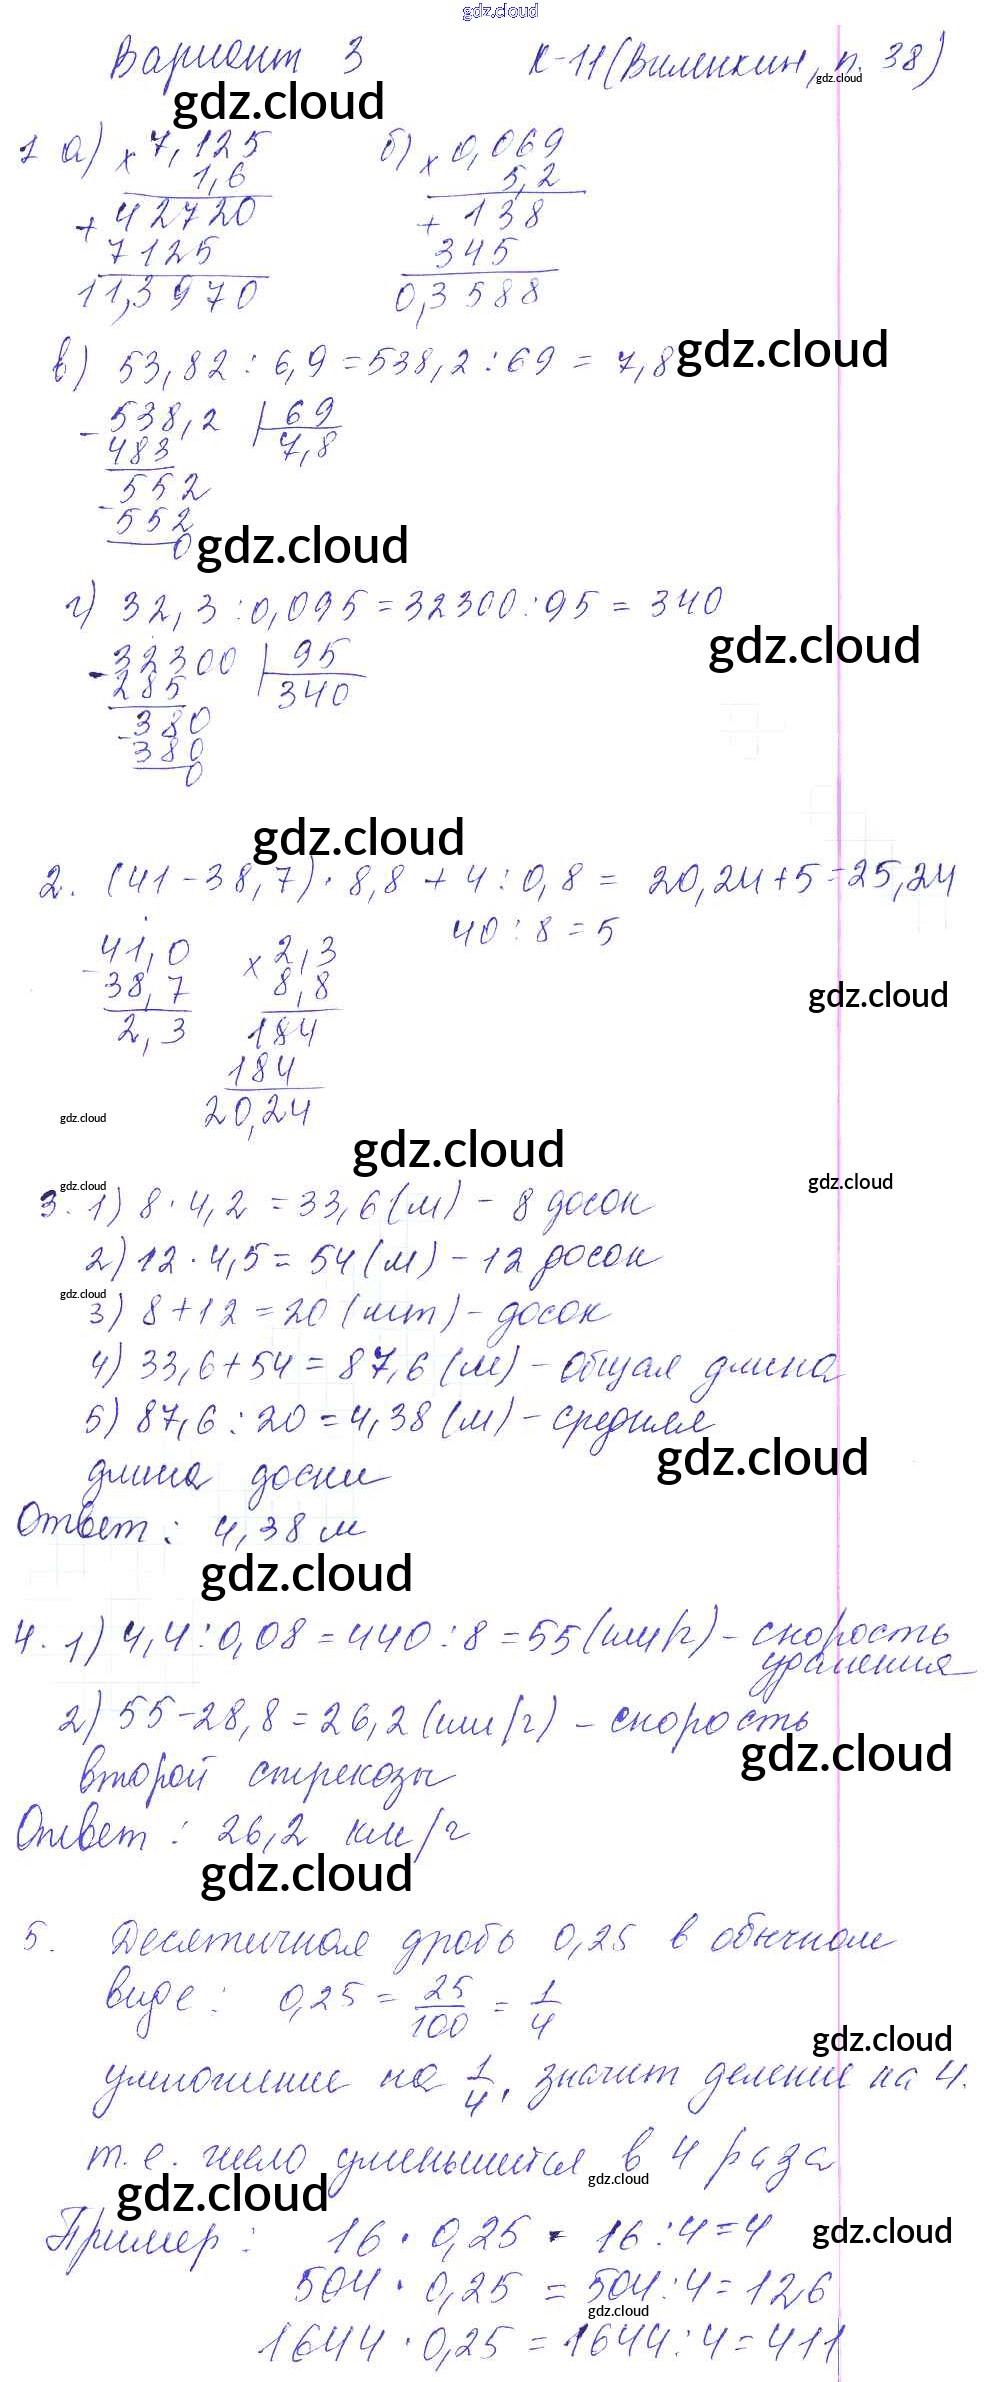 gdz.cloud
Вариант 3 К-11 (Виленкин, п. 38)
gdz.cloud
gdz.cloud
1 а) × 7,125 б) × 0,069
1,6 5,2
+ 42720 + 138
7125 345
11,3970 0,3588
в) 53,82 : 6,9 = 538,2 : 69 = 7,8
gdz.cloud
- 538,2 | 69
483 7,8
- 552
552
0
gdz.cloud
г) 32,3 : 0,095 = 32300 : 95 = 340
gdz.cloud
- 32300 | 95
285 340
- 380
380
0
gdz.cloud
2. (41 - 38,7) · 8,8 + 4 : 0,8 = 20,24 + 5 = 25,24
40 : 8 = 5
- 41,0 × 2,3
38,7 8,8
2,3 184
184
20,24
gdz.cloud
gdz.cloud
gdz.cloud
gdz.cloud
gdz.cloud
3. 1) 8 · 4,2 = 33,6 (м) - 8 досок
2) 12 · 4,5 = 54 (м) - 12 досок
gdz.cloud
3) 8 + 12 = 20 (шт) - досок
4) 33,6 + 54 = 87,6 (м) - общая длина
5) 87,6 : 20 = 4,38 (м) - средняя
gdz.cloud
длина доски
Ответ: 4,38 м
gdz.cloud
4. 1) 4,4 : 0,08 = 440 : 8 = 55 (км/г) - скорость
удаления
2) 55 - 28,8 = 26,2 (км/г) - скорость
gdz.cloud
второй стрекозы
Ответ: 26,2 км/г
gdz.cloud
5. Десятичная дробь 0,25 в обычном
виде: 0,25 = 25/100 = 1/4
gdz.cloud
умножение на 1/4, значит деление на 4.
т.е. число уменьшится в 4 раза
gdz.cloud
gdz.cloud
Пример: 16 · 0,25 = 16 : 4 = 4
gdz.cloud
504 · 0,25 = 504 : 4 = 126
gdz.cloud
1644 · 0,25 = 1644 : 4 = 411